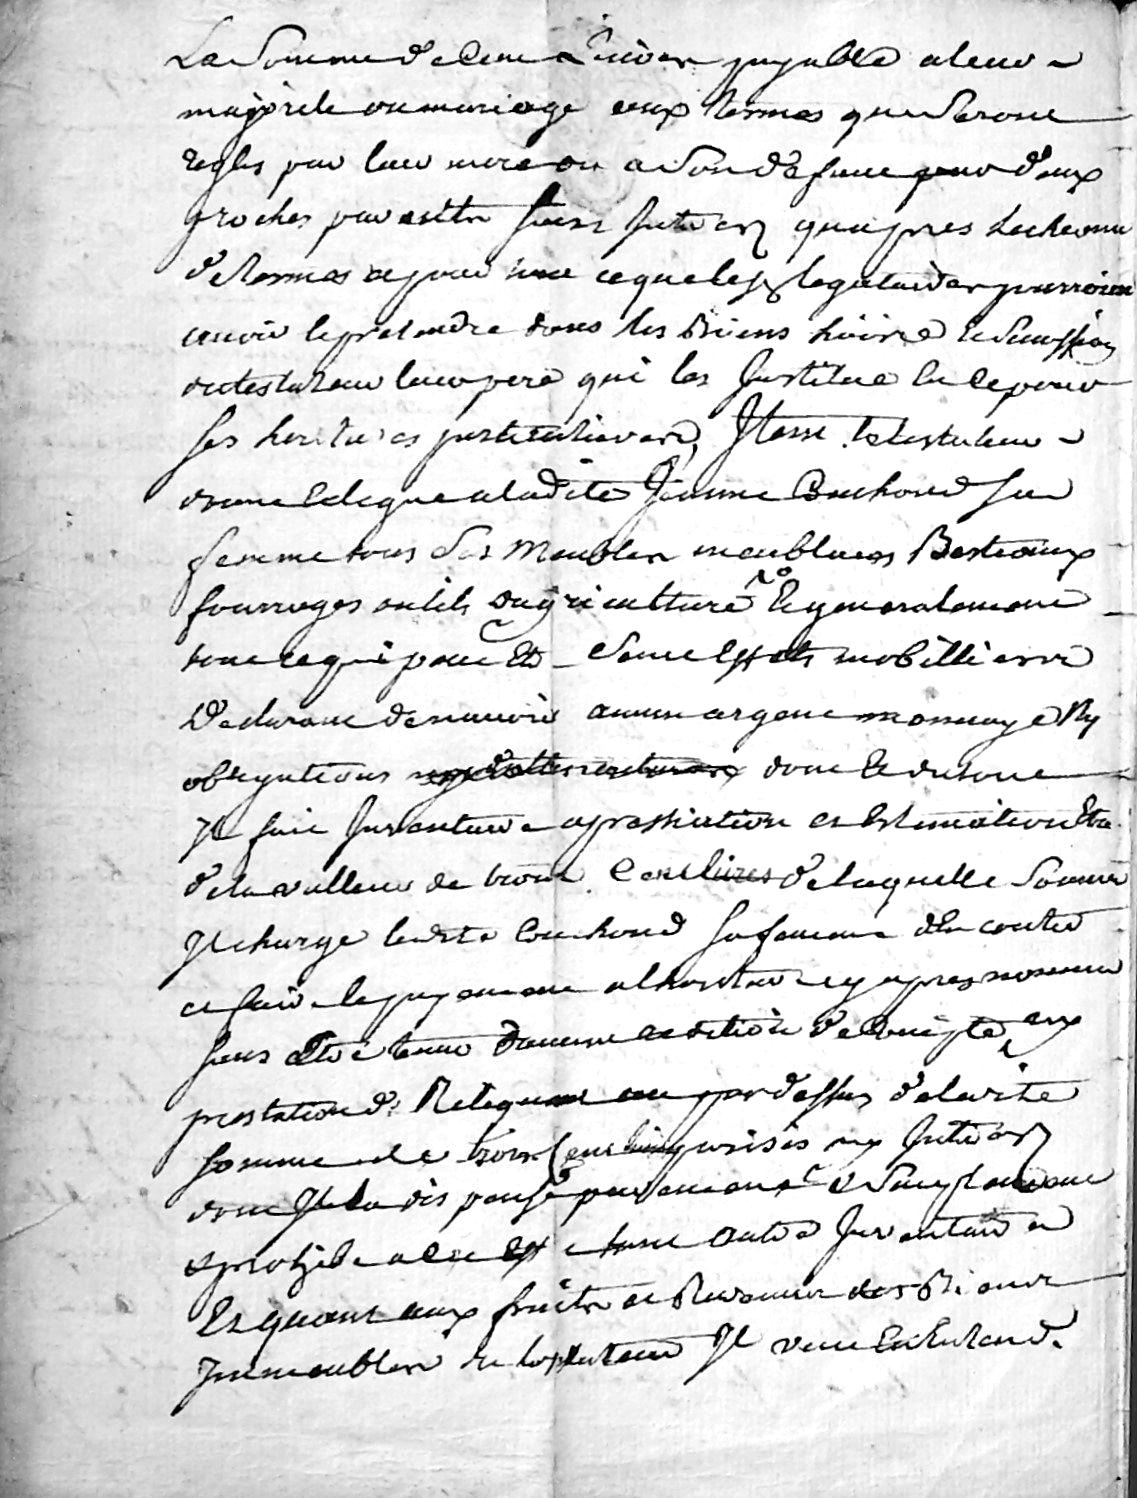 La somme de cent livres payable a leur
majorité ou mariage aux termes que seront
reglés par leur mere ou a son deffaut par deux
proches parents sans interest qu'apres lecheance
des termes et pour tout ce que lesd legataires pourroient
avoir le pretendre dans les Biens hoirie et succession
du testateur leur pere qui les Institue en ce pour
ses heritiers particulieres, Item le testateur
donne et legue a ladite Jeanne Couchoud sa
femme tous ses Meubles meublans Bestiaux
fourrages outils d'agriculture et generalement
tout ce qui peut Et sont effets mobilliers
Declarant de n'avoir aucun argent monnoyé Ny
obligations dont et du tout
Il fait Inventaire apretiation et Estimation Etre
de la valleur de trois Cent livres de laquelle somme
Il charge ladite Couchoud sa femme den conter
et faire le payement a lheritier cy apres nommé
sans Etre tenue d'aucune addition de compte ny
prestation de Reliquat au par dessus de ladite
somme de trois Cent livres ny Interest
dont Il la dispense par et simplement
prohibe a cet Effet tout autre Inventaire
Et quant aux fruits et Revenus des Biens
Immeubles du testateur Il veut Et entend